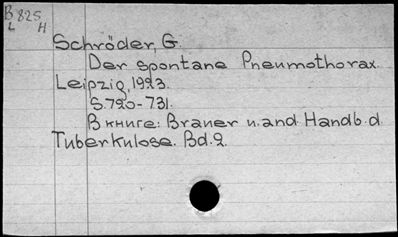 B 825
L H
Schröder, G.
Der spontane Pneumothorax.
Leipzig, 1923.
S. 720-731.
В книге: Brauer u. and. Handb. d
Tuberkulose. Bd. 2.